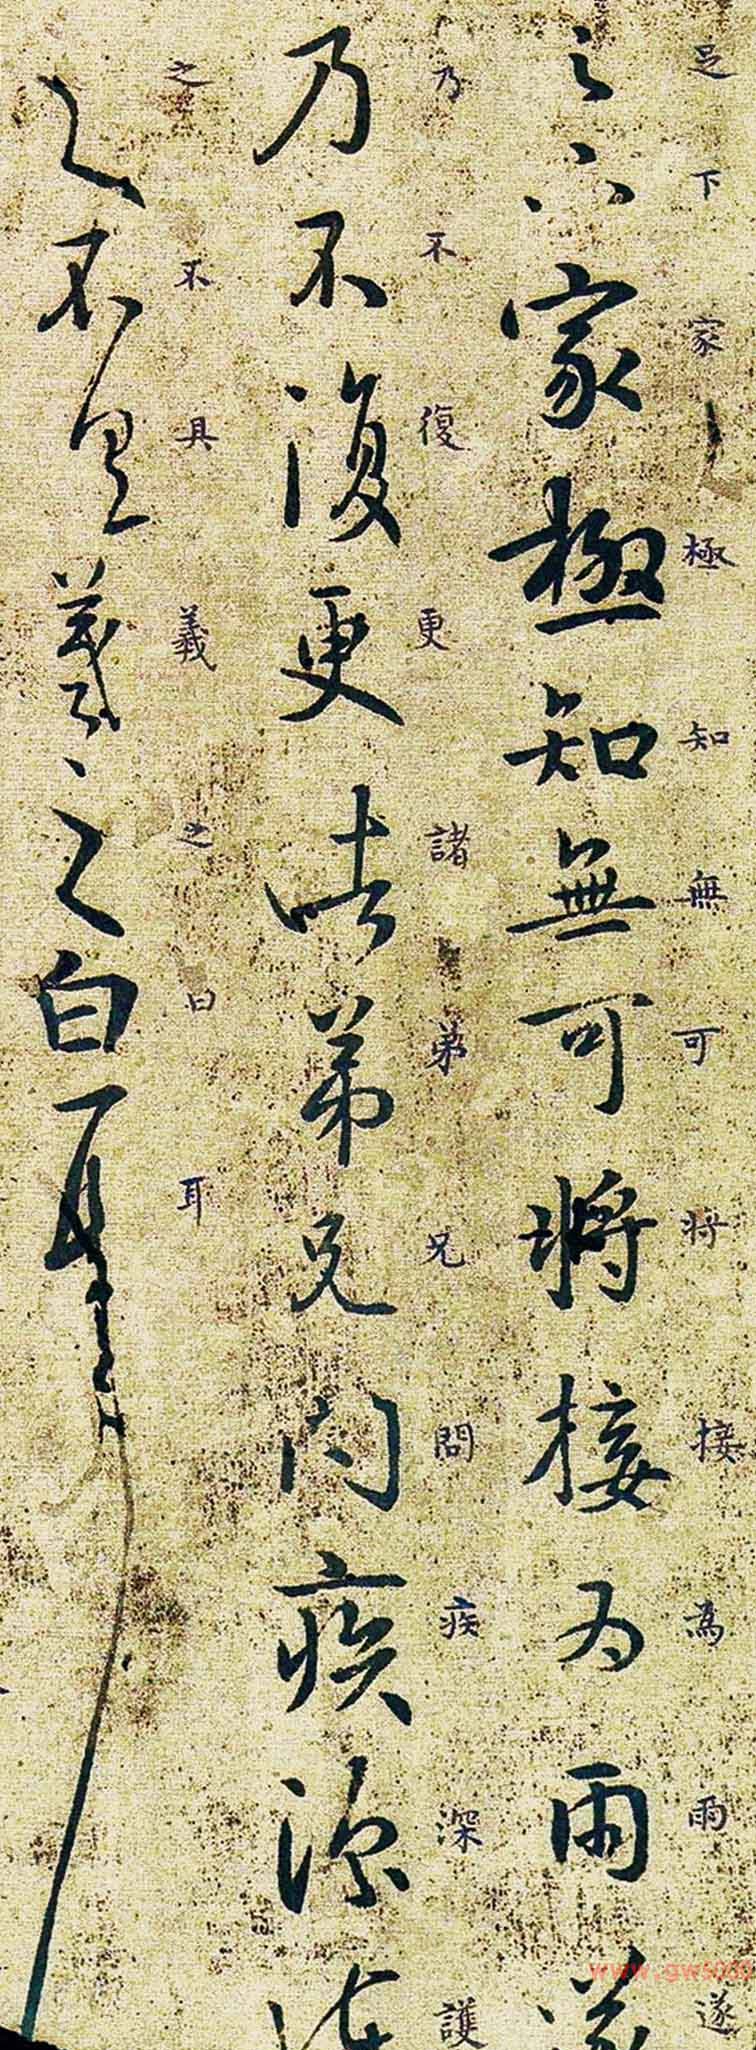 足下家極知無可将接為雨遂
足下家極知無可將接為雨遂
乃不復更諸弟兄問疾深護
乃不復更諸弟兄問疾深護
之不具義之曰耳
之不具羲之白耳
www.gw5000